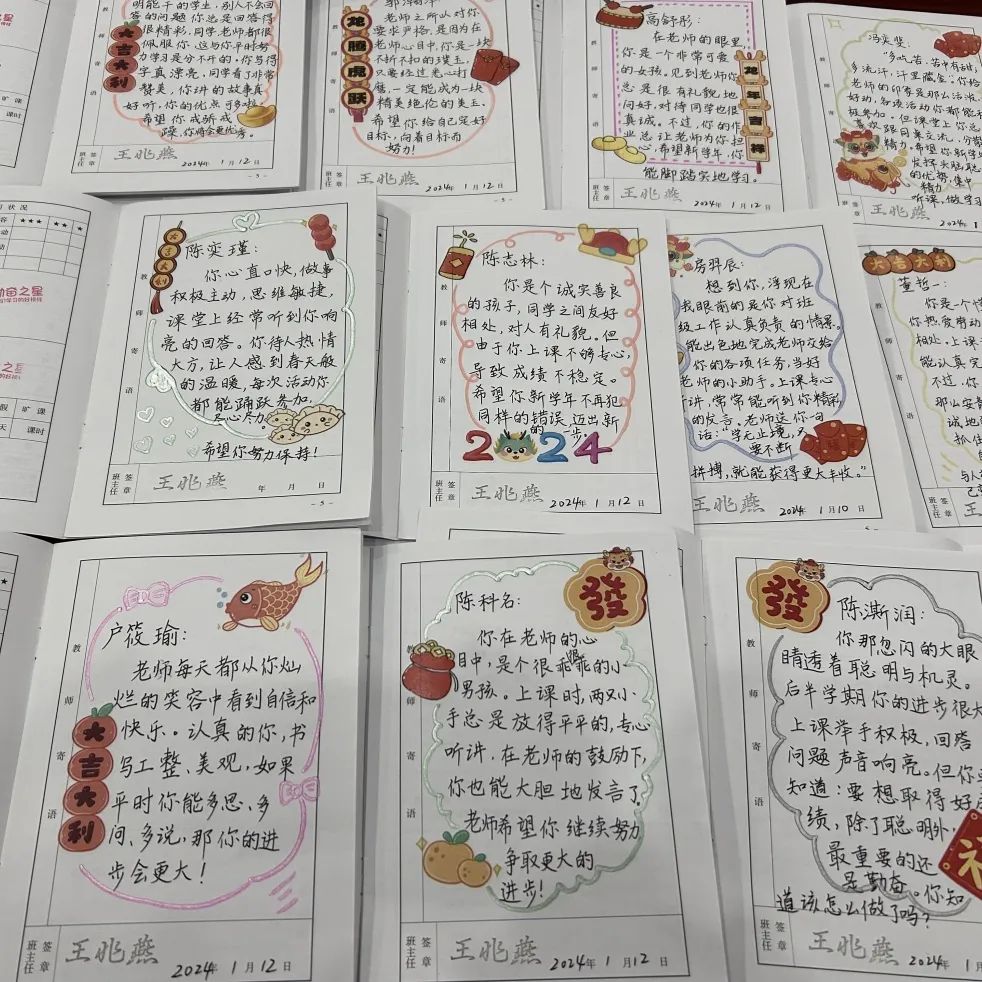 明能干的学生，别人不会回
答的问题你总是回答得
很精彩，同学、老师都很
佩服你，这与你平时努
力学习是分不开的，你写得
字真漂亮，同学看了非常
赞美，你讲的故事真
好听，你的优点可多啦，
希望你戒骄戒
躁，你将会更优秀。
大吉大利
班主任
签章
王兆燕
2024年1月12日
- 5 -
老师之所以对你
要求严格，是因为在
老师心目中，你是一块
不折不扣的璞玉，
只要经过悉心打
磨，一定能成为一块
精美绝伦的美玉。
希望你给自己定好
目标，向着目标而
努力！
龙腾虎跃
班主任
签章
王兆燕
2024年1月12日
高舒彤：
在老师的眼里，
你是一个非常可爱
的女孩。见到老师你
总是很有礼貌地
问好，对待同学也很
真诚。不过，你的作
业总让老师为你担
心，希望新学年，你
能脚踏实地学习。
龙年吉祥
教师寄语
班主任
签章
王兆燕
2024年1月12日
冯奕斐：
“多吃苦，苦中有甜；
多流汗，汗里藏金。”你给
老师的印象是那么活泼
好动，各项活动你都能积
极参加。但课堂上你总
喜欢跟同桌交流，分散
精力。希望你新学
发挥头脑聪
的优势，集中
精力
听课，做学习
王兆燕
2024年1月12日
陈奕瑾：
你心直口快，做事
积极主动，思维敏捷，
课堂上经常听到你响
亮的回答。你待人热情
大方，让人感到春天般
的温暖，每次活动你
都能踊跃参加，
尽心尽力
希望你努力保持！
大吉大利
教师寄语
班主任
签章
王兆燕
年 月 日
- 5 -
陈志林：
你是个诚实善良
的孩子，同学之间友好
相处，对人有礼貌。但
由于你上课不够专心，
导致成绩不稳定。
希望你新学年不再犯
同样的错误，迈出新
的一步。
2024
教师寄语
班主任
签章
王兆燕
2024年1月12日
房羿辰：
想到你，浮现在
我眼前的是你对班
级工作认真负责的情景。
能出色地完成老师交给
你的各项任务，当好
老师的小助手。上课专心
听讲，常常能听到你精彩
的发言。老师送你一句
话：“学无止境，
要不断
拼搏，就能获得更大丰收。”
班主任
签章
王兆燕
2024年1月10日
大吉大利
董哲一：
你是一个
你热爱劳动
相处。上课
能认真完
不过，你
那么安静
诚地
抓住
与人
教师寄语
班主任
签章
王兆燕
户筱瑜：
老师每天都从你灿
烂的笑容中看到自信和
快乐。认真的你，书
写工整、美观，如果
平时你能多思、多
问、多说，那你的进
步会更大！
大吉大利
教师寄语
班主任
签章
王兆燕
2024年1月12日
陈科名：
發
你在老师的心
目中，是个很乖乖的小
男孩。上课时，两只小
手总是放得平平的，专心
听讲，在老师的鼓励下，
你也能大胆地发言了。
老师希望你继续努力
争取更大的
进步！
教师寄语
班主任
签章
王兆燕
2024年1月12日
發
陈澌润：
你那忽闪的大眼
睛透着聪明与机灵。
后半学期你的进步很大
上课举手积极，回答
问题声音响亮。但你要
知道：要想取得好成
绩，除了聪明外，
最重要的还
是勤奋。你知
道该怎么做了吗？
教师寄语
班主任
签章
王兆燕
2024年1月